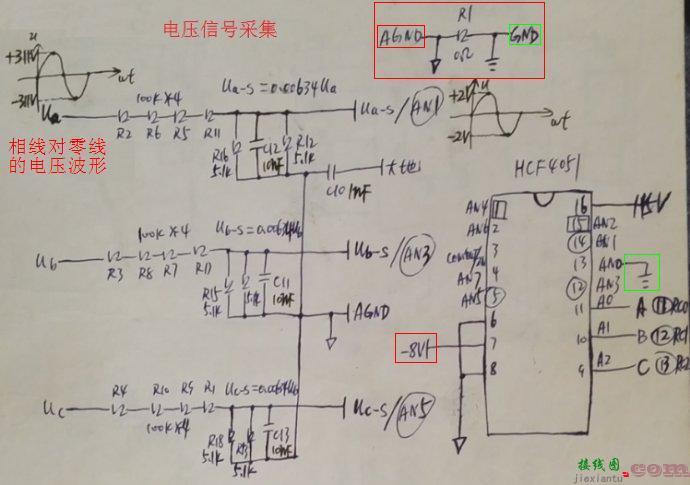 电压信号采集
R1
AGND
0Ω
GND
u
+311V
-311V
wt
Ua
100K*4
R2 R6 R5 R11
Ua-s=0.00634Ua
Ua-s/AN1
u
+2V
-2V
wt
相线对零线
的电压波形
R16
5.1K
C12
10nF
R12
5.1K
大地
HCF4051
AN4 1
AN6 2
3
AN7 4
AN5 5
6
7
8
16
15 AN2
14 AN1
13
12 AN3
11 A0 A 11 RC0
10 A1 B 12 RC1
9 A2 C 13 RC2
Ub
100K*4
R3 R8 R7
Ub-s/AN3
R15
5.1K
5.1K
C11
10nF
AGND
-8V
Uc
R4 R10 R9 R1
100K*4
Uc-s/AN5
R18
5.1K
5.1K
C13
10nF
接线图
jiexiantu